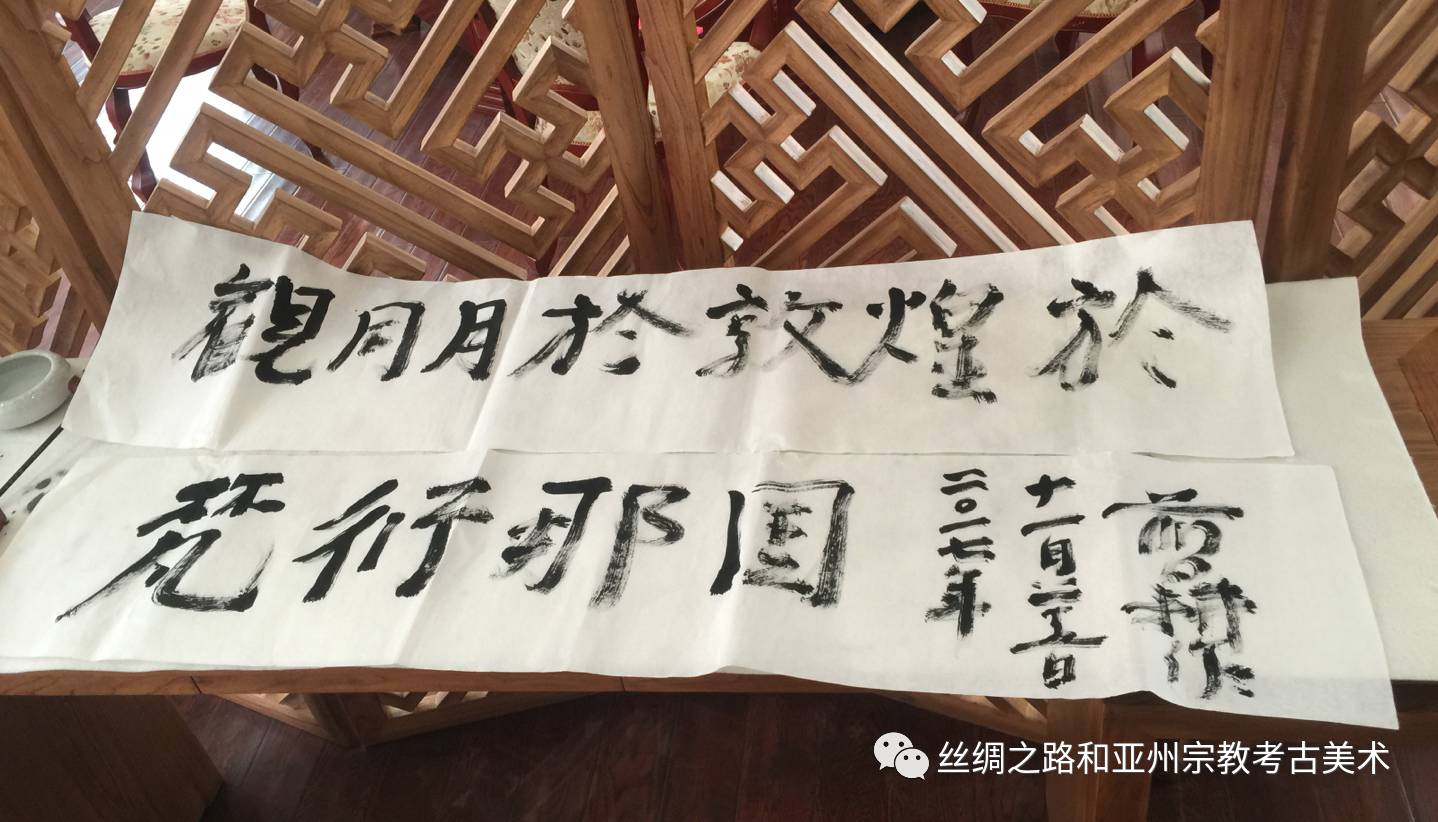 觀同月於敦煌於
梵衍那国
二〇一七年
十一月二十五日
前耕作
丝绸之路和亚州宗教考古美术